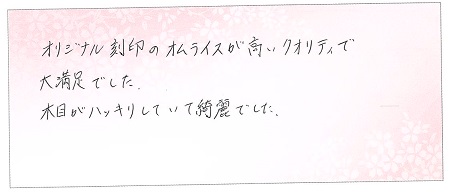 オリジナル刻印のオムライスが高いクオリティで
大満足でした.
木目がハッキリしていて綺麗でした.